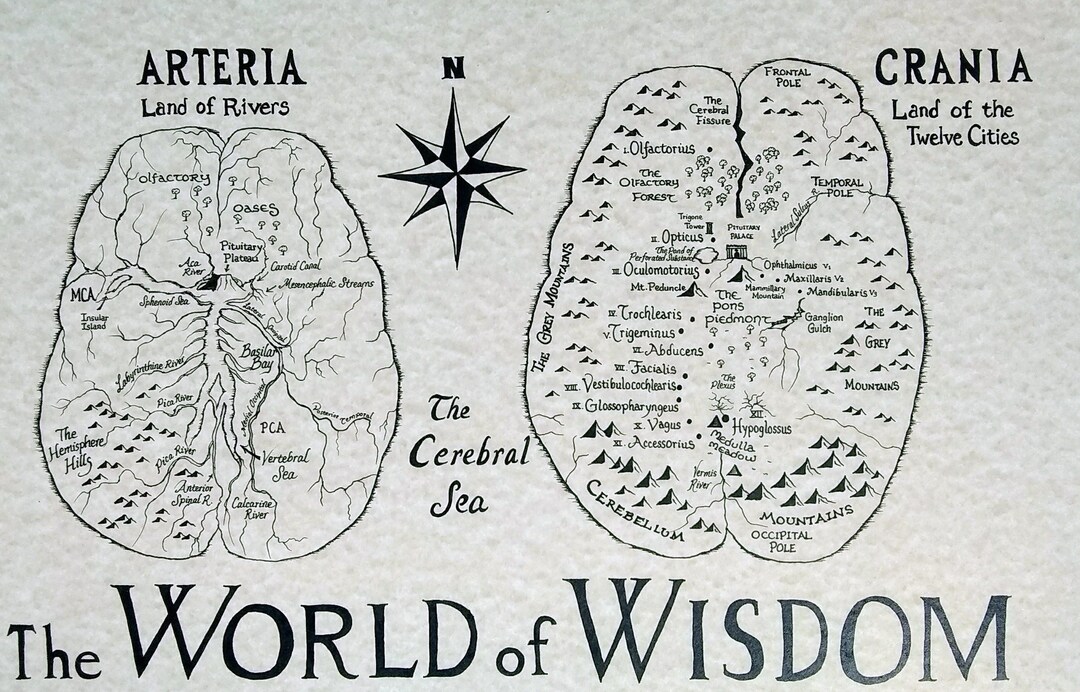 ARTERIA
Land of Rivers
N
CRANIA
Land of the
Twelve Cities
Olfactory
Oases
Pituitary
Plateau
Aca
River
Carotid Canal
Mesencephalic Streams
MCA
Sphenoid Sea
Insular
Island
Lateral
Labyrinthine River
Basilar
Bay
Pica River
Posterior Temporal
PCA
The
Hemisphere
Hills
Pica River
Vertebral
Sea
Anterior
Spinal R.
Calcarine
River
The
Cerebral
Sea
FRONTAL
POLE
The
Cerebral
Fissure
I. Olfactorius
THE
OLFACTORY
FOREST
TEMPORAL
POLE
Lateral Sulcus
Trigone
Tower
PITUITARY
PALACE
II. Opticus
The Pond of
Perforated Substance
III. Oculomotorius
Ophthalmicus V1
Maxillaris V2
Mandibularis V3
Mammillary
Mountain
Mt. Peduncle
The
pons
piedmont
Ganglion
Gulch
IV. Trochlearis
V. Trigeminus
VI. Abducens
VII. Facialis
VIII. Vestibulocochlearis
IX. Glossopharyngeus
X. Vagus
XI. Accessorius
The
Plexus
XII
Hypoglossus
Medulla
Meadow
Vermis
River
THE GREY MOUNTAINS
THE
GREY
MOUNTAINS
CEREBELLUM
MOUNTAINS
OCCIPITAL
POLE
The WORLD of WISDOM